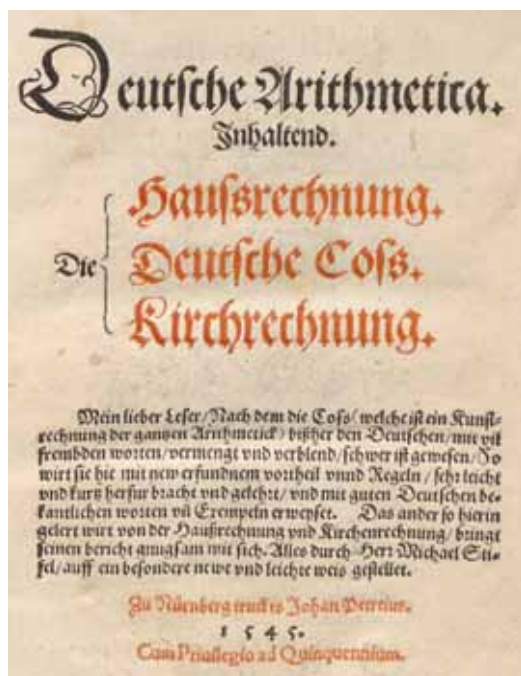 Deutsche Arithmetica.
Inhaltend.
Die
Hauſsrechnung.
Deutſche Coſs.
Kirchrechnung.
Mein lieber Leſer/Nach dem die Coſs (welche iſt ein Kunſt-
rechnung der gantzen Arithmetick) biſzher den Deutſchen/mit vil
frembden worten/vermengt vnd verblend/ſchwer iſt geweſen/So
wirt ſie hie mit new erfundnem vortheil vnnd Regeln/ ſehr leicht
vnd kurtz herfür bracht vnd gelehrt/ vnd mit guten Deutſchen be-
kantlichen worten vñ Exempeln erweyſet. Das ander ſo hierin
gelert wirt von der Hauſzrechnung vnd Kirchenrechnung/ bringt
ſeinen bericht gnugſam mit ſich. Alles durch Herr Michael Sti-
fel/ auff ein beſondere newe vnd leichte weis geſtellet.
Zu Nürnberg truckts Johan Petreius.
1545.
Cum Priuilegio ad Quinquennium.